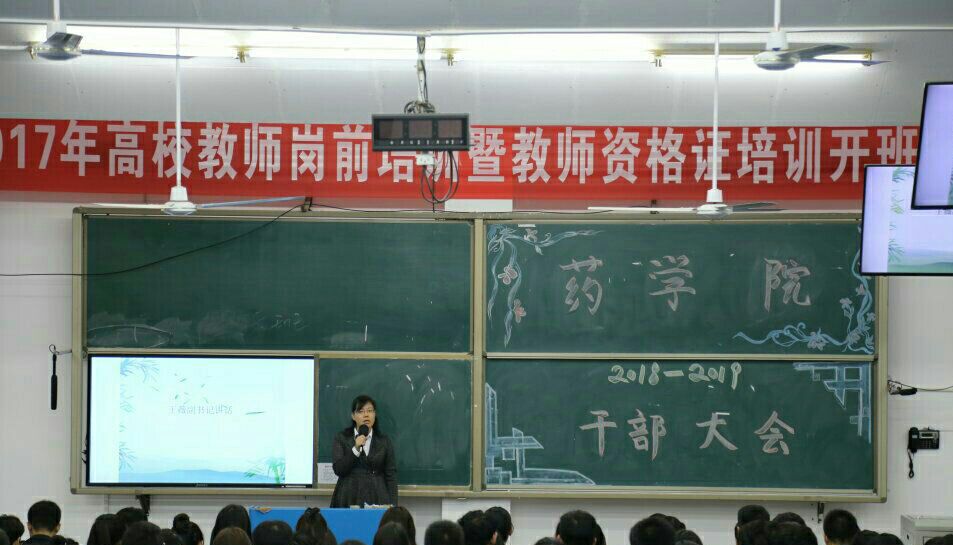 017年高校教师岗前培训暨教师资格证培训开班
药学院
2018-2019
干部大会
王薇副书记讲话